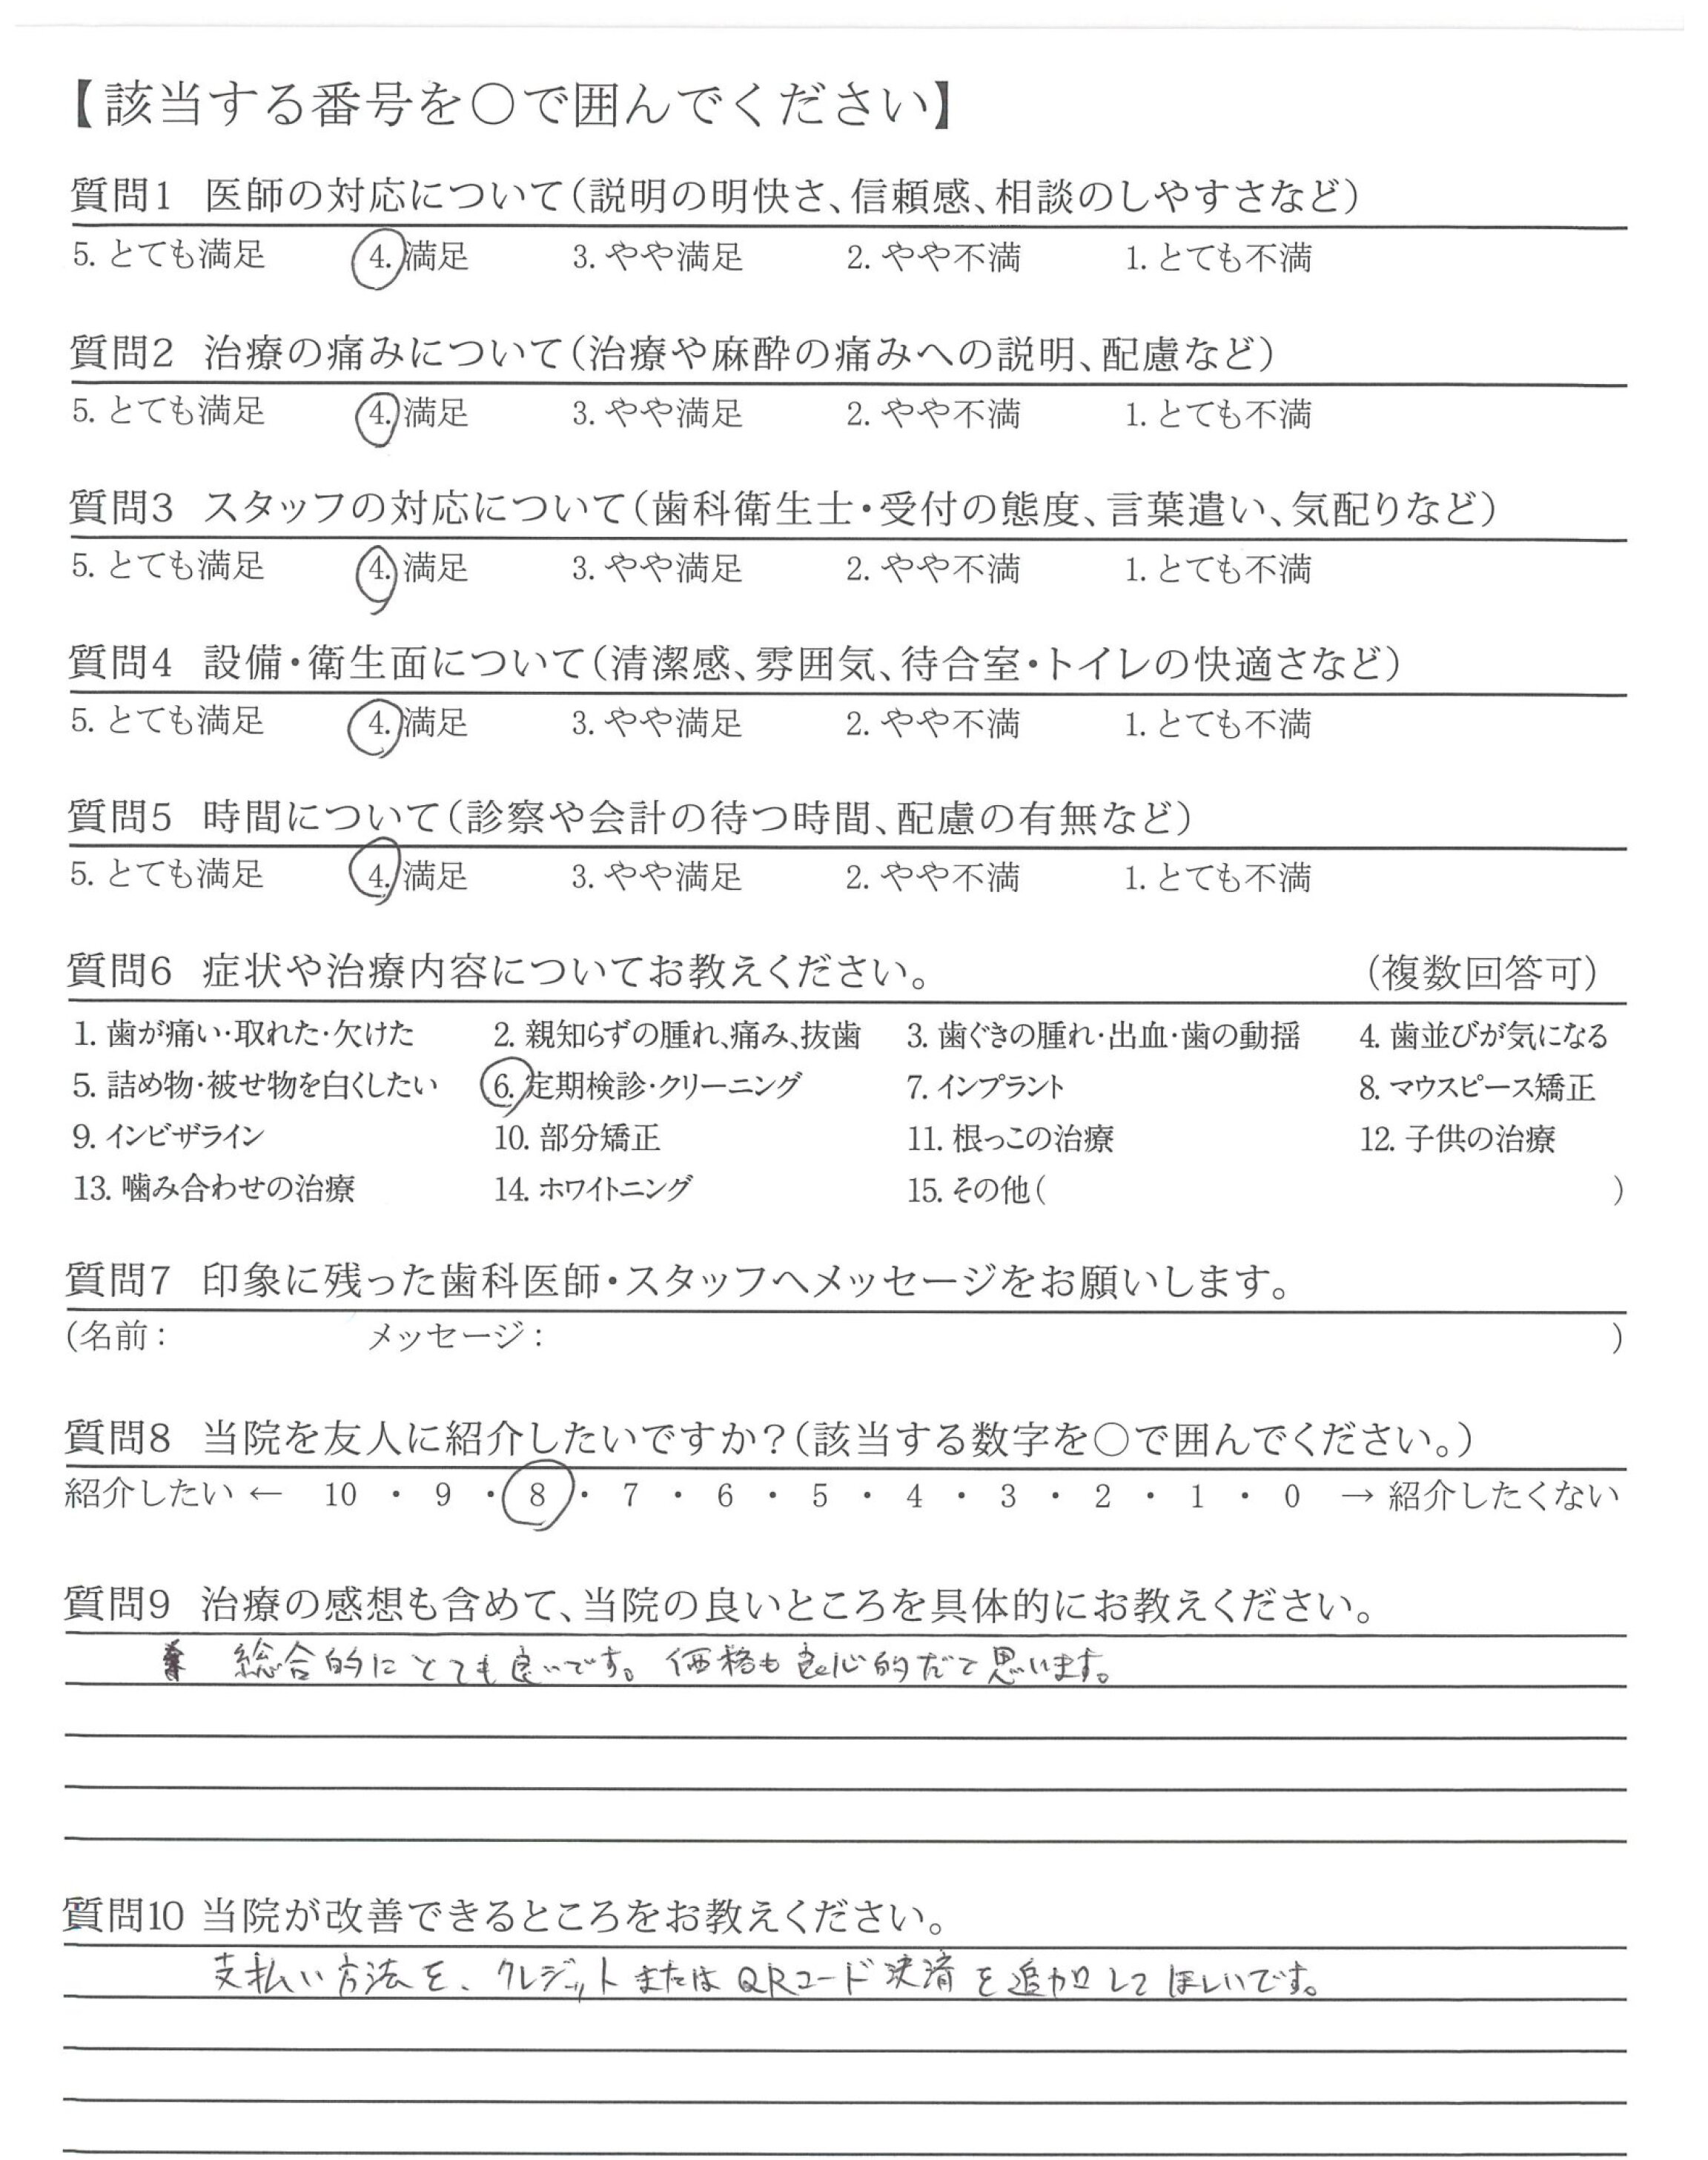 【該当する番号を○で囲んでください】
質問1 医師の対応について(説明の明快さ、信頼感、相談のしやすさなど)
5. とても満足 4. 満足 3. やや満足 2. やや不満 1. とても不満
質問2 治療の痛みについて(治療や麻酔の痛みへの説明、配慮など)
5. とても満足 4. 満足 3. やや満足 2. やや不満 1. とても不満
質問3 スタッフの対応について(歯科衛生士・受付の態度、言葉遣い、気配りなど)
5. とても満足 4. 満足 3. やや満足 2. やや不満 1. とても不満
質問4 設備・衛生面について(清潔感、雰囲気、待合室・トイレの快適さなど)
5. とても満足 4. 満足 3. やや満足 2. やや不満 1. とても不満
質問5 時間について(診察や会計の待つ時間、配慮の有無など)
5. とても満足 4. 満足 3. やや満足 2. やや不満 1. とても不満
質問6 症状や治療内容についてお教えください。 (複数回答可)
1. 歯が痛い・取れた・欠けた 2. 親知らずの腫れ、痛み、抜歯 3. 歯ぐきの腫れ・出血・歯の動揺 4. 歯並びが気になる
5. 詰め物・被せ物を白くしたい 6. 定期検診・クリーニング 7. インプラント 8. マウスピース矯正
9. インビザライン 10. 部分矯正 11. 根っこの治療 12. 子供の治療
13. 噛み合わせの治療 14. ホワイトニング 15. その他( )
質問7 印象に残った歯科医師・スタッフへメッセージをお願いします。
(名前: メッセージ: )
質問8 当院を友人に紹介したいですか?(該当する数字を○で囲んでください。)
紹介したい ← 10 ・ 9 ・ 8 ・ 7 ・ 6 ・ 5 ・ 4 ・ 3 ・ 2 ・ 1 ・ 0 → 紹介したくない
質問9 治療の感想も含めて、当院の良いところを具体的にお教えください。
総合的にとても良いです。価格も良心的だと思います。
質問10 当院が改善できるところをお教えください。
支払い方法を、クレジットまたはQRコード決済を追加してほしいです。